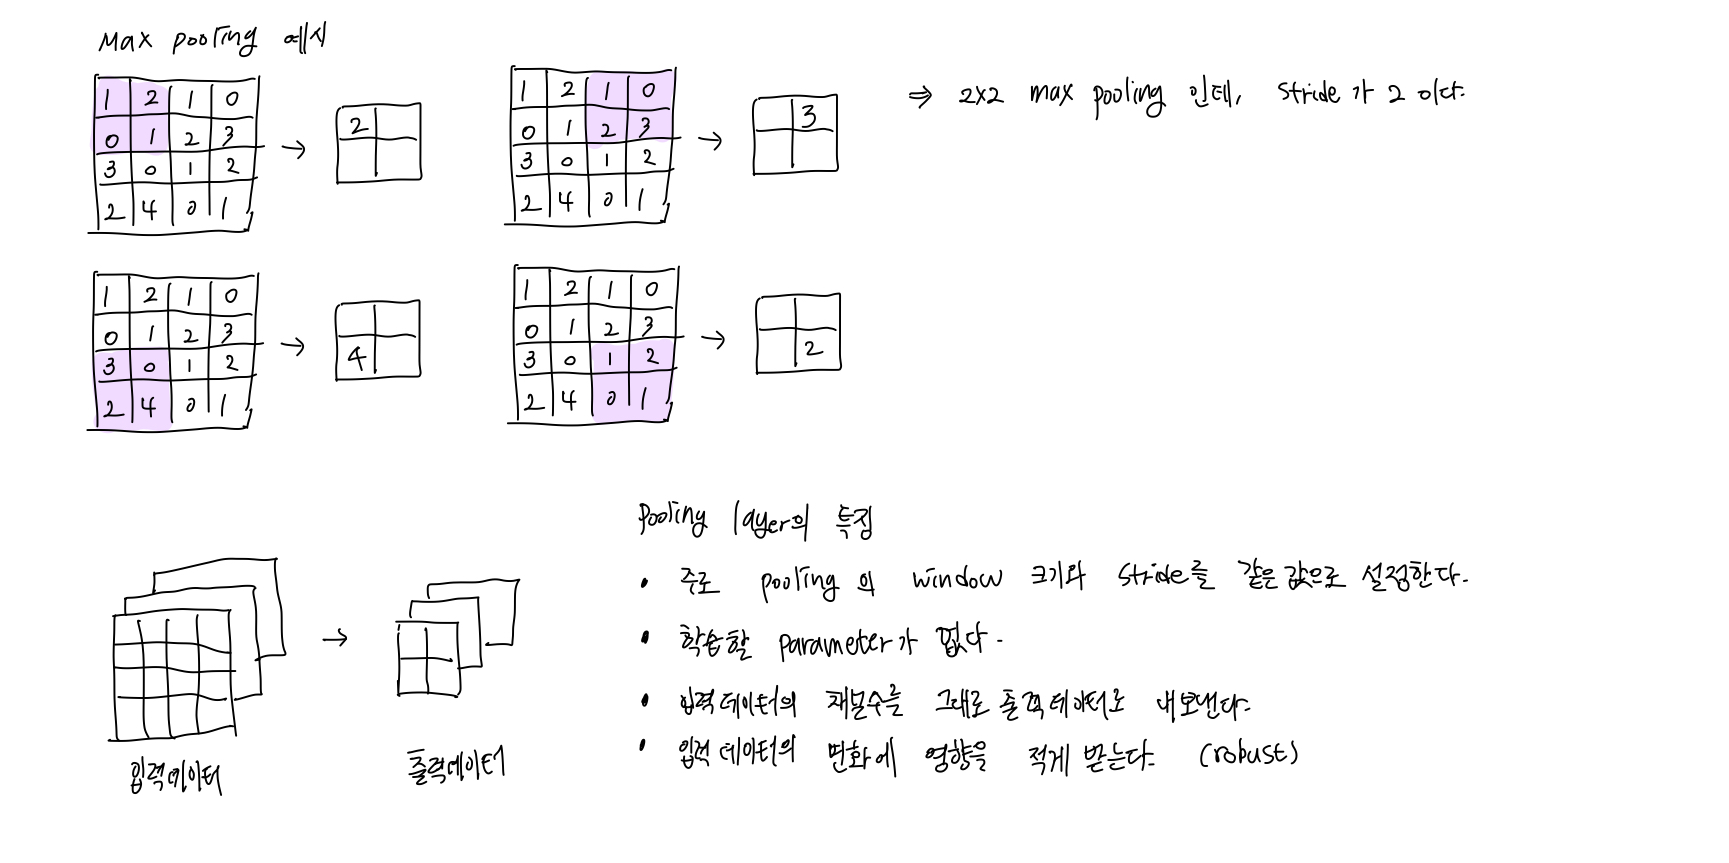 Max pooling 예시
1 2 1 0
0 1 2 3
3 0 1 2
2 4 0 1
→
2
1 2 1 0
0 1 2 3
3 0 1 2
2 4 0 1
→
3
⇒ 2x2 max pooling 인데, stride가 2 이다.
1 2 1 0
0 1 2 3
3 0 1 2
2 4 0 1
→
4
1 2 1 0
0 1 2 3
3 0 1 2
2 4 0 1
→
2
→
입력데이터
출력데이터
pooling layer의 특징
• 주로 pooling의 window 크기와 stride를 같은 값으로 설정한다.
• 학습할 parameter가 없다.
• 입력데이터의 채널수를 그대로 출력데이터로 내보낸다.
• 입력데이터의 변화에 영향을 적게 받는다. (robust)